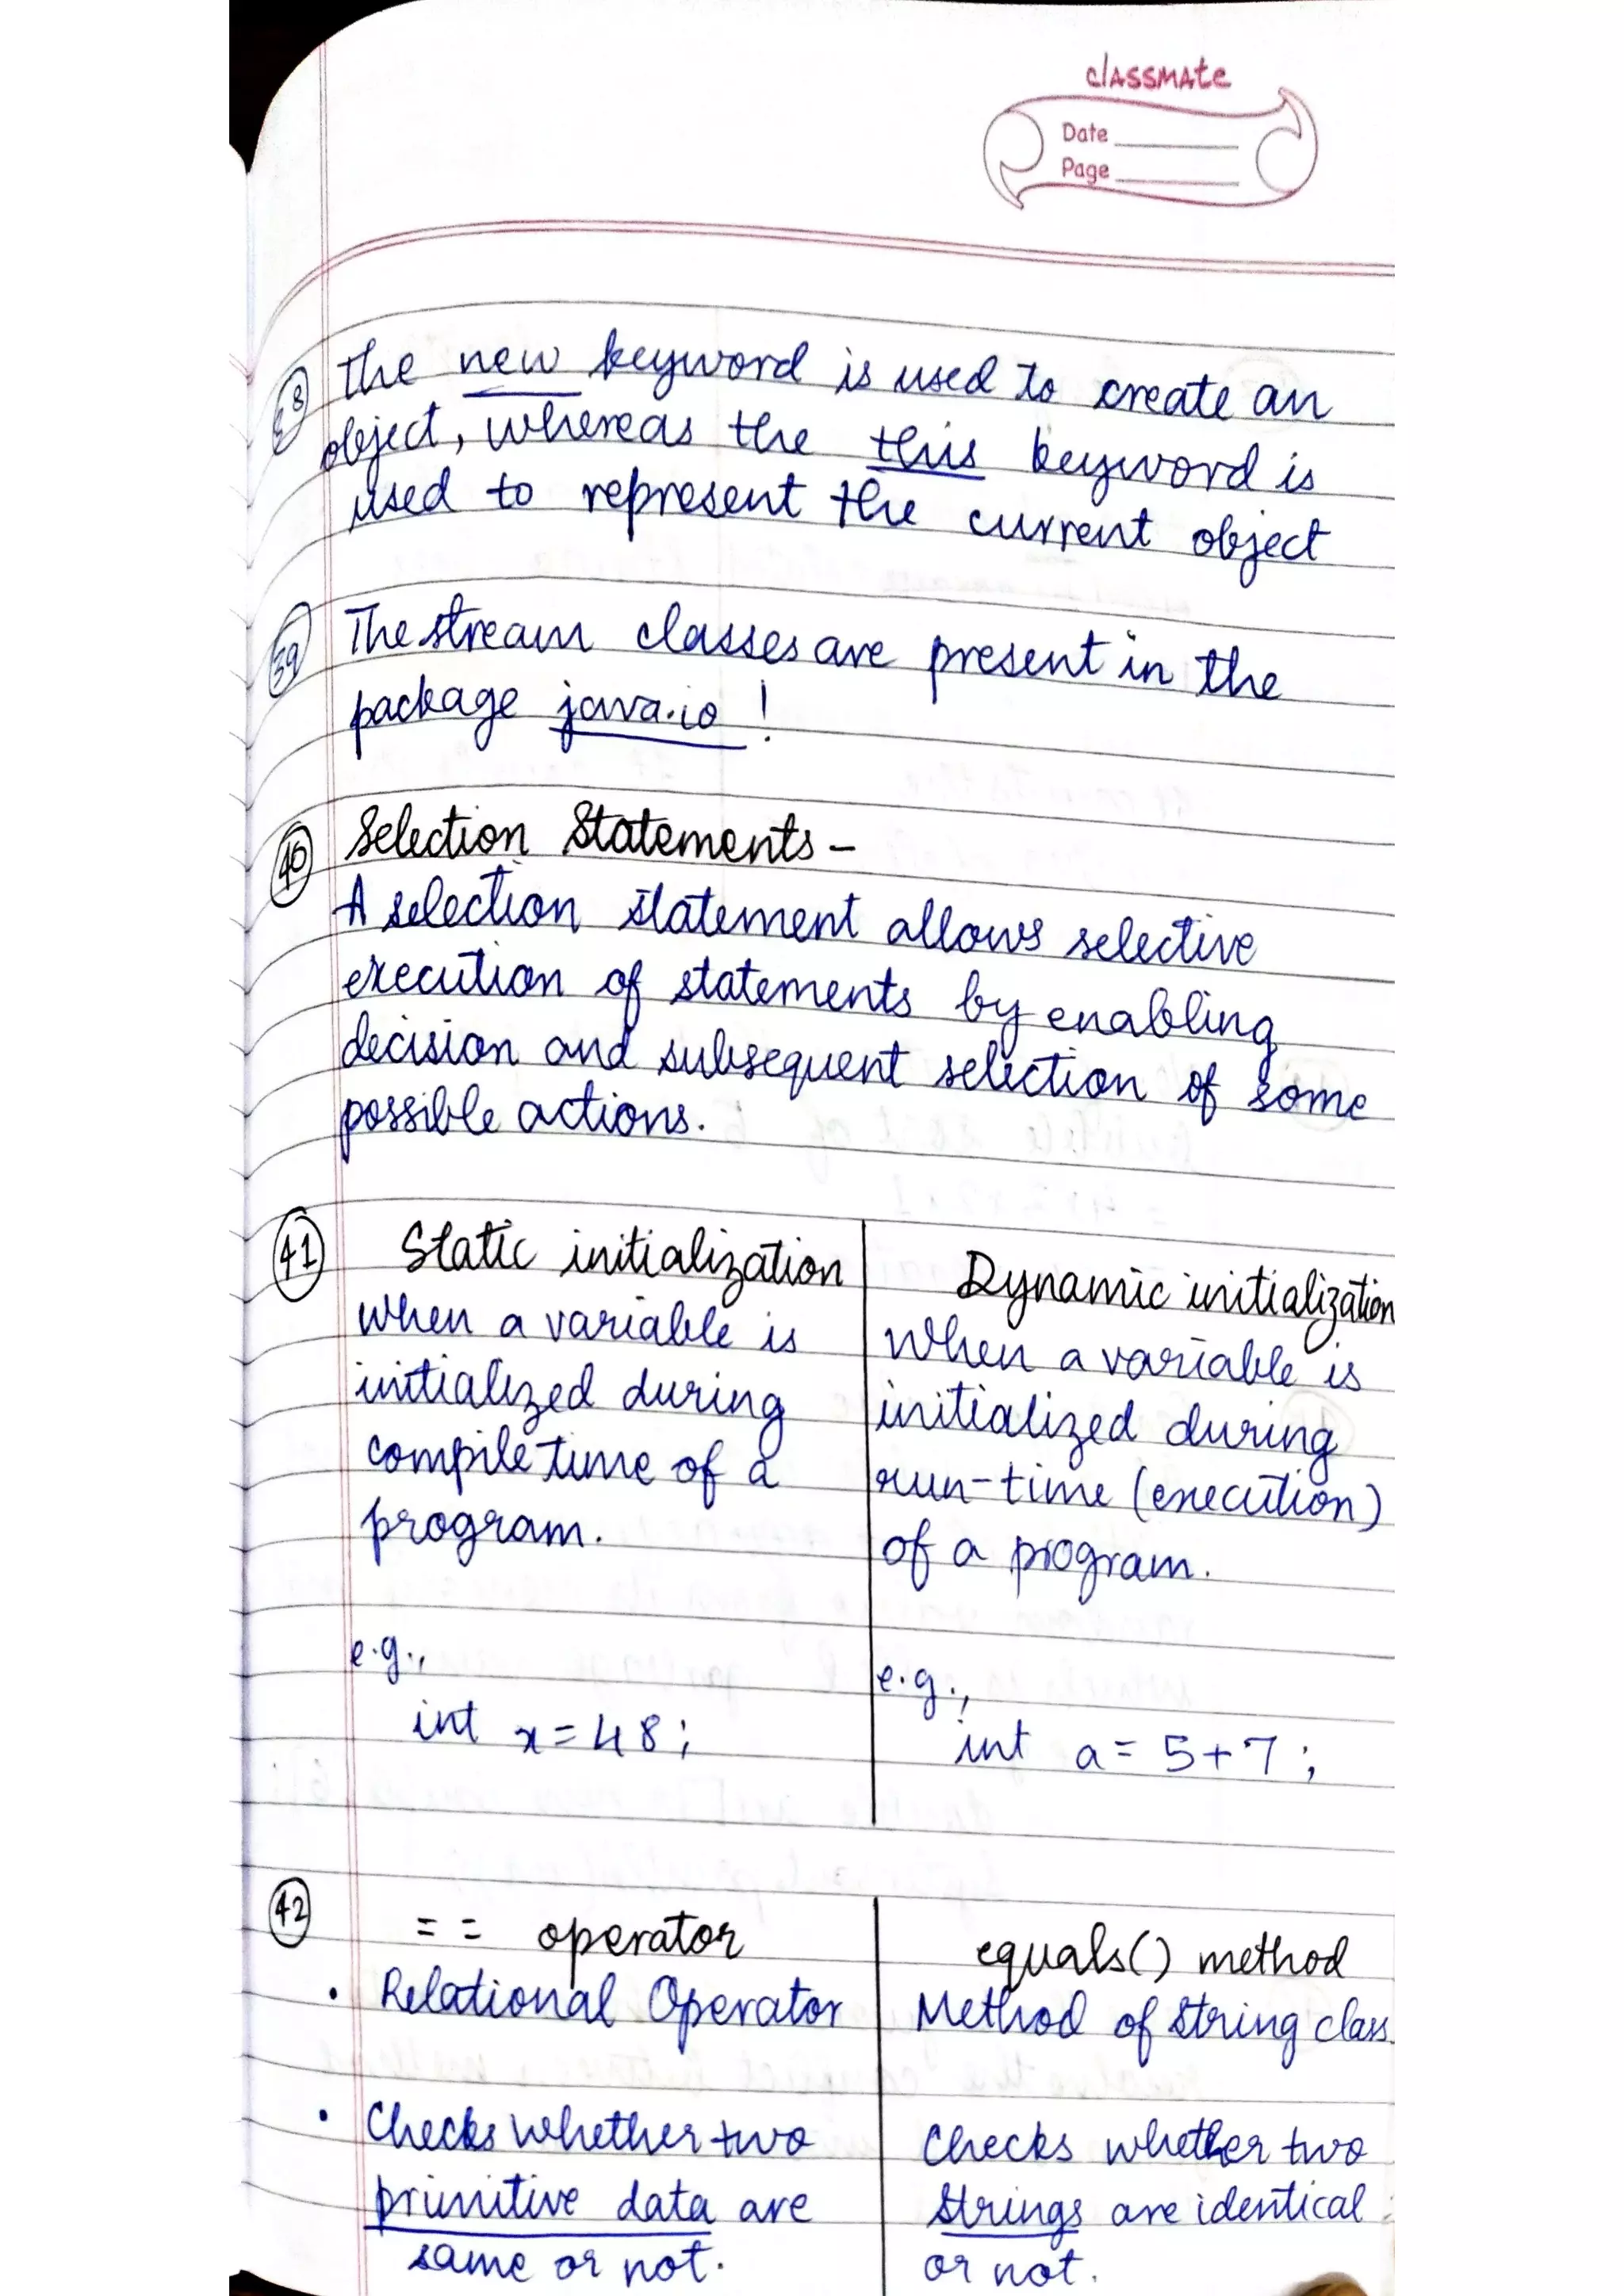 classmate
Date
Page
38 The new keyword is used to create an
object, whereas the this keyword is
used to represent the current object
39 The stream classes are present in the
package java.io !
40 Selection Statements -
A selection statement allows selective
execution of statements by enabling
decision and subsequent selection of some
possible actions.
41 Static initialization
When a variable is
initialized during
compile time of a
program.
e.g.,
int x = 48;
Dynamic initialization
When a variable is
initialized during
run-time (execution)
of a program.
e.g.,
int a = 5+7 ;
42 == operator
• Relational Operator
• Checks whether two
primitive data are
same or not.
equals() method
Method of String class.
Checks whether two
Strings are identical
or not.